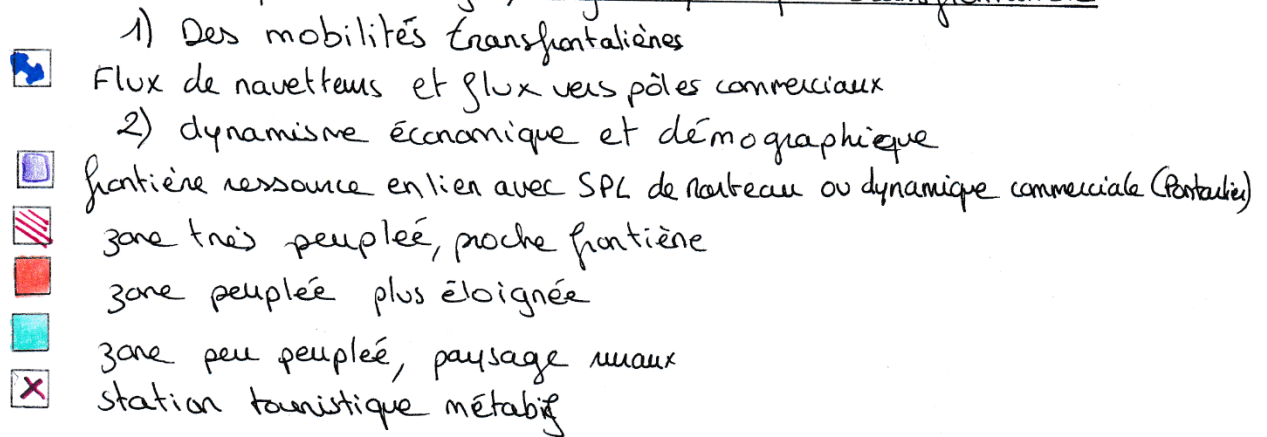 1) Des mobilités transfrontalières
Flux de navetteurs et flux vers pôles commerciaux
2) dynamisme économique et démographique
frontière ressource en lien avec SPL de morteau ou dynamique commerciale (Pontarlier)
zone très peuplée, proche frontière
zone peuplée plus éloignée
zone peu peuplée, paysage ruraux
station touristique métabif